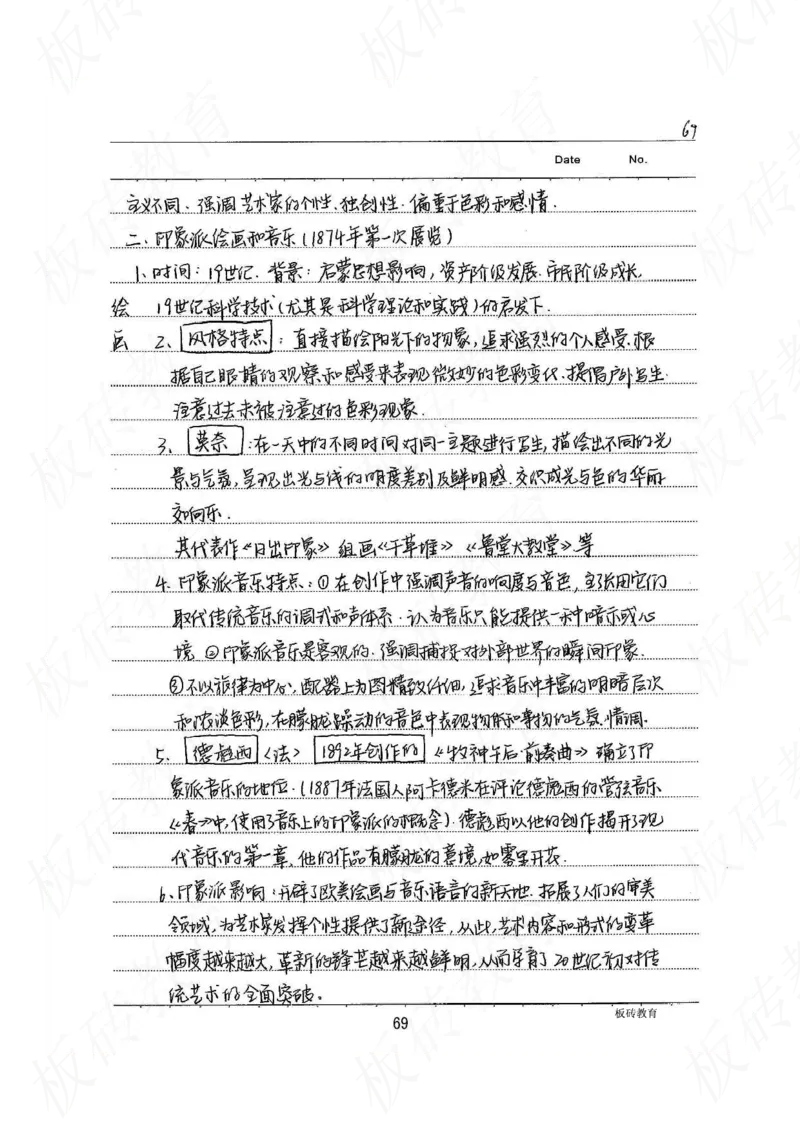 69
Date No.
主义不同、强调艺术家的个性、独创性、偏重于色彩和感情.
二、印象派绘画和音乐(1874年第一次展览)
1、时间:19世纪. 背景:启蒙思想影响,资产阶级发展.市民阶级成长.
绘 19世纪科学技术(尤其是科学理论和实践)的启发下.
画 2、风格特点:直接描绘阳光下的物象,追求强烈的个人感受.根
据自己眼睛的观察和感受来表现微妙的色彩变化.提倡户外写生
注意过去未被注意过的色彩现象.
3、莫奈:在一天中的不同时间对同一主题进行写生,描绘出不同的光
景与气氛,呈现出光与线的明度差别及鲜明感.交织成光与色的华丽
交响乐.
其代表作《日出印象》组画《干草堆》《鲁堂大教堂》等
4、印象派音乐特点:①在创作中强调声音的响度与音色,主张用它们
取代传统音乐的调式和声体系.认为音乐只能提供一种暗示或心
境 ②印象派音乐是客观的.强调捕捉对外部世界的瞬间印象.
③不以旋律为中心,配器上力图精致纤细,追求音乐中丰富的明暗层次
和浓淡色彩,在朦胧躁动的音色中表现物体和事物的气氛情调.
5、德彪西〈法〉1892年创作的《牧神午后·前奏曲》确立了印
象派音乐的地位.(1887年法国人阿卡德米在评论德彪西的管弦音乐
《春》中,使用了音乐上的印象派的概念).德彪西以他的创作揭开了现
代音乐的第一章、他的作品有朦胧的意境,如雾里开花.
6、印象派影响:开辟了欧美绘画与音乐语言的新天地.拓展了人们的审美
领域,为艺术家发挥个性提供了新途径,从此,艺术内容和形式的变革
幅度越来越大,革新的锋芒越来越鲜明,从而孕育了20世纪初对传
统艺术的全面突破。
板砖教育
69